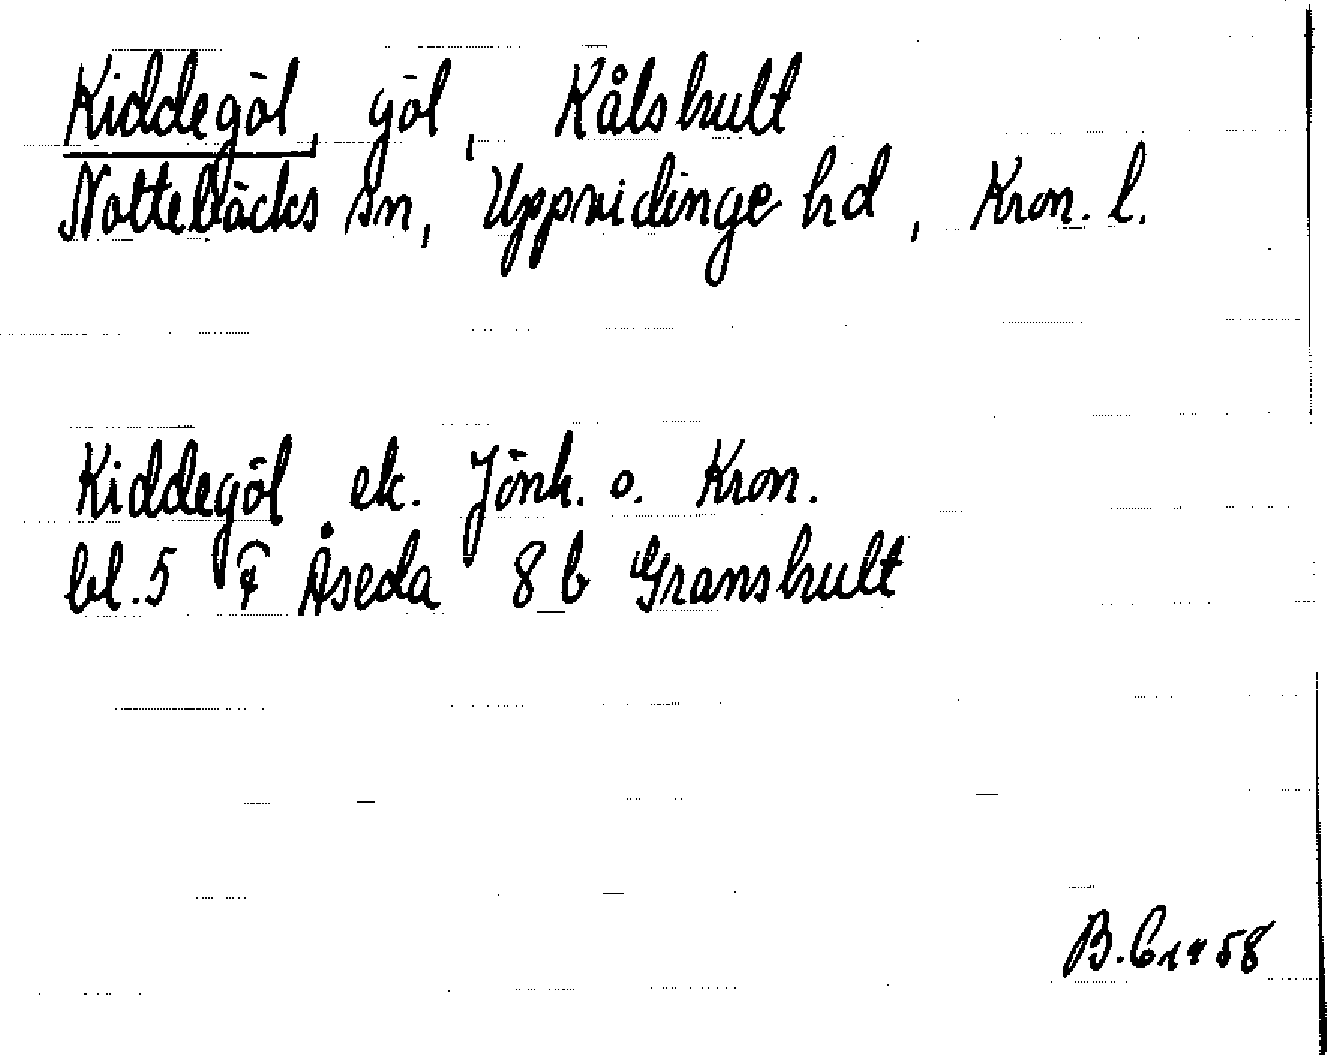 Kiddegöl, göl, Kålshult
Nottebäcks sn, Uppvidinge hd, Kron. l.
Kiddegöl ek. Jönk. o. Kron.
bl. 5 F Åseda 8 b Granshult
B. 58